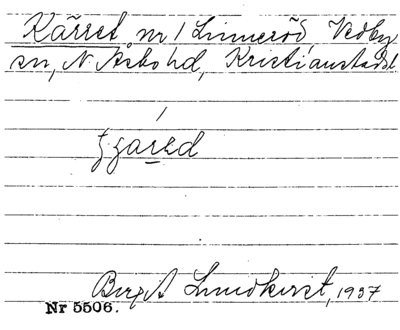 Kärret nr 1 Linneröd Vedby
sn, N. Åsbo hd, Kristianstads l
Birgit Lundkvist, 1937
Nr 5506.